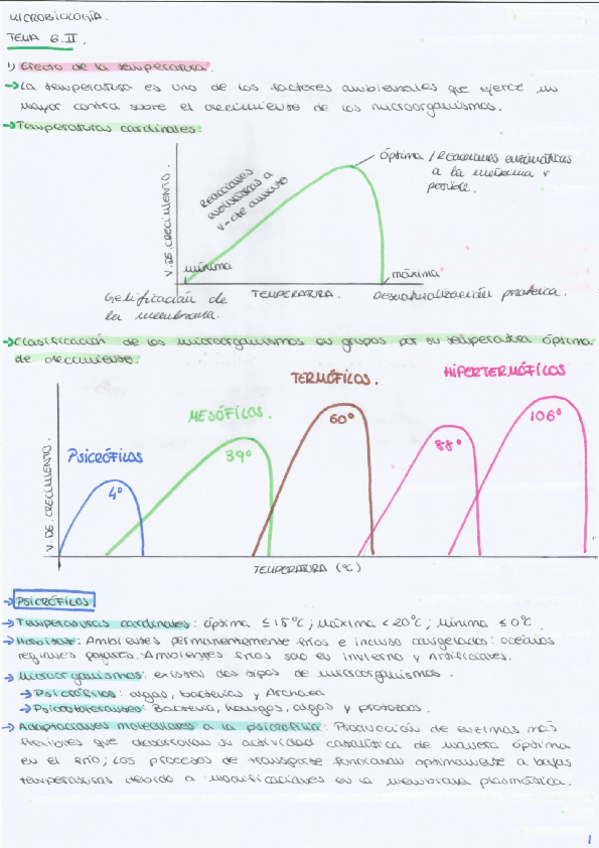 MICROBIOLOGÍA.
TEMA 6.II.
1) Efecto de la temperatura.
→La temperatura es uno de los factores ambientales que ejerce un
mayor control sobre el crecimiento de los microorganismos.
→Temperaturas cardinales:
V. DE. CRECIMIENTO.
Reacciones
enzimáticas a
v=cte aumento
óptima / Reacciones enzimáticas
a la máxima v
posible.
mínima
máxima
Gelificación de
la membrana.
TEMPERATURA.
Desnaturalización proteica.
→Clasificación de los microorganismos en grupos por su temperatura óptima
de crecimiento:
V. DE. CRECIMIENTO.
PSICRÓFILOS
4º
MESÓFILOS.
39º
TERMÓFILOS.
60º
HIPERTERMÓFILOS
88º
106º
TEMPERATURA (ºC)
→PSICRÓFILOS
→Temperaturas cardinales: óptima ≤15ºC; Máxima <20ºC; Mínima ≤0ºC.
→Hábitats: Ambientes permanentemente fríos e incluso congelados: océanos
regiones polares. Ambientes fríos solo en invierno y Artificiales.
→Microorganismos: existen dos tipos de microorganismos.
→Psicrófilos: algas, bacterias y Archaea
→Psicotolerantes: Bacteria, hongos, algas y protozoos.
→Adaptaciones moleculares a la psicrofilia: Producción de enzimas más
flexibles que desarrollan su actividad catalítica de manera óptima
en el frío; Los procesos de transporte funcionan optimamente a bajas
temperaturas debido a modificaciones en la membrana plasmática.
1